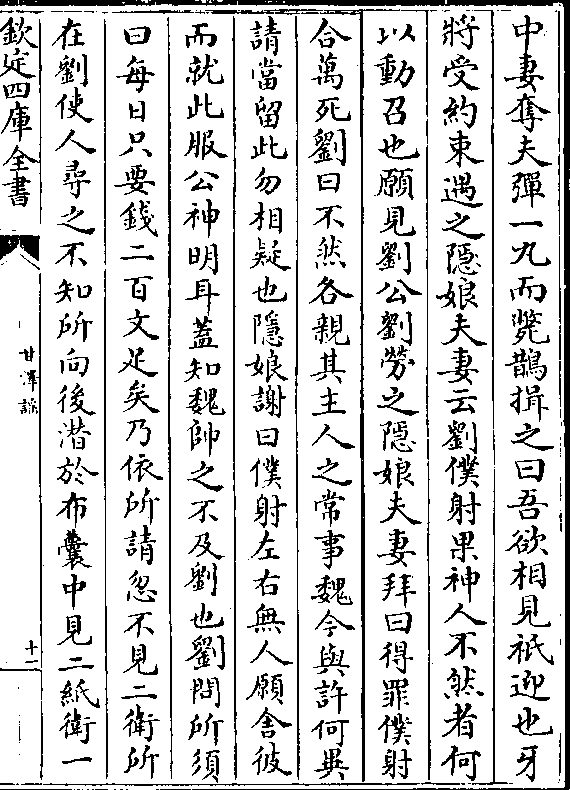 中妻奪夫彈一丸而斃鵲揖之曰吾欲相見祇迎也牙
將受約束遇之隱娘夫妻云劉僕射果神人不然者何
以動召也願見劉公劉勞之隱娘夫妻拜曰得罪僕射
合萬死劉曰不然各親其主人之常事魏今與許何異
請當留此勿相疑也隱娘謝曰僕射左右無人願舍彼
而就此服公神明耳蓋知魏帥之不及劉也劉問所須
曰每日只要錢二百文足矣乃依所請忽不見二衛所
在劉使人尋之不知所向後潛於布囊中見二紙衛一
欽定四庫全書
甘澤謠
十二